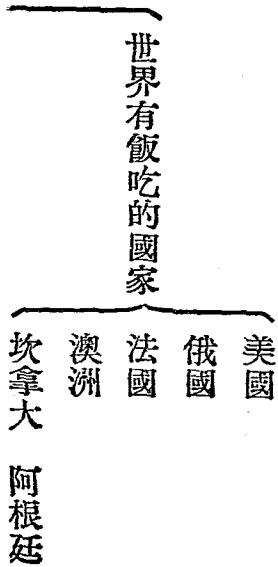 世界有飯吃的國家
美國
俄國
法國
澳洲
坎拿大　阿根廷